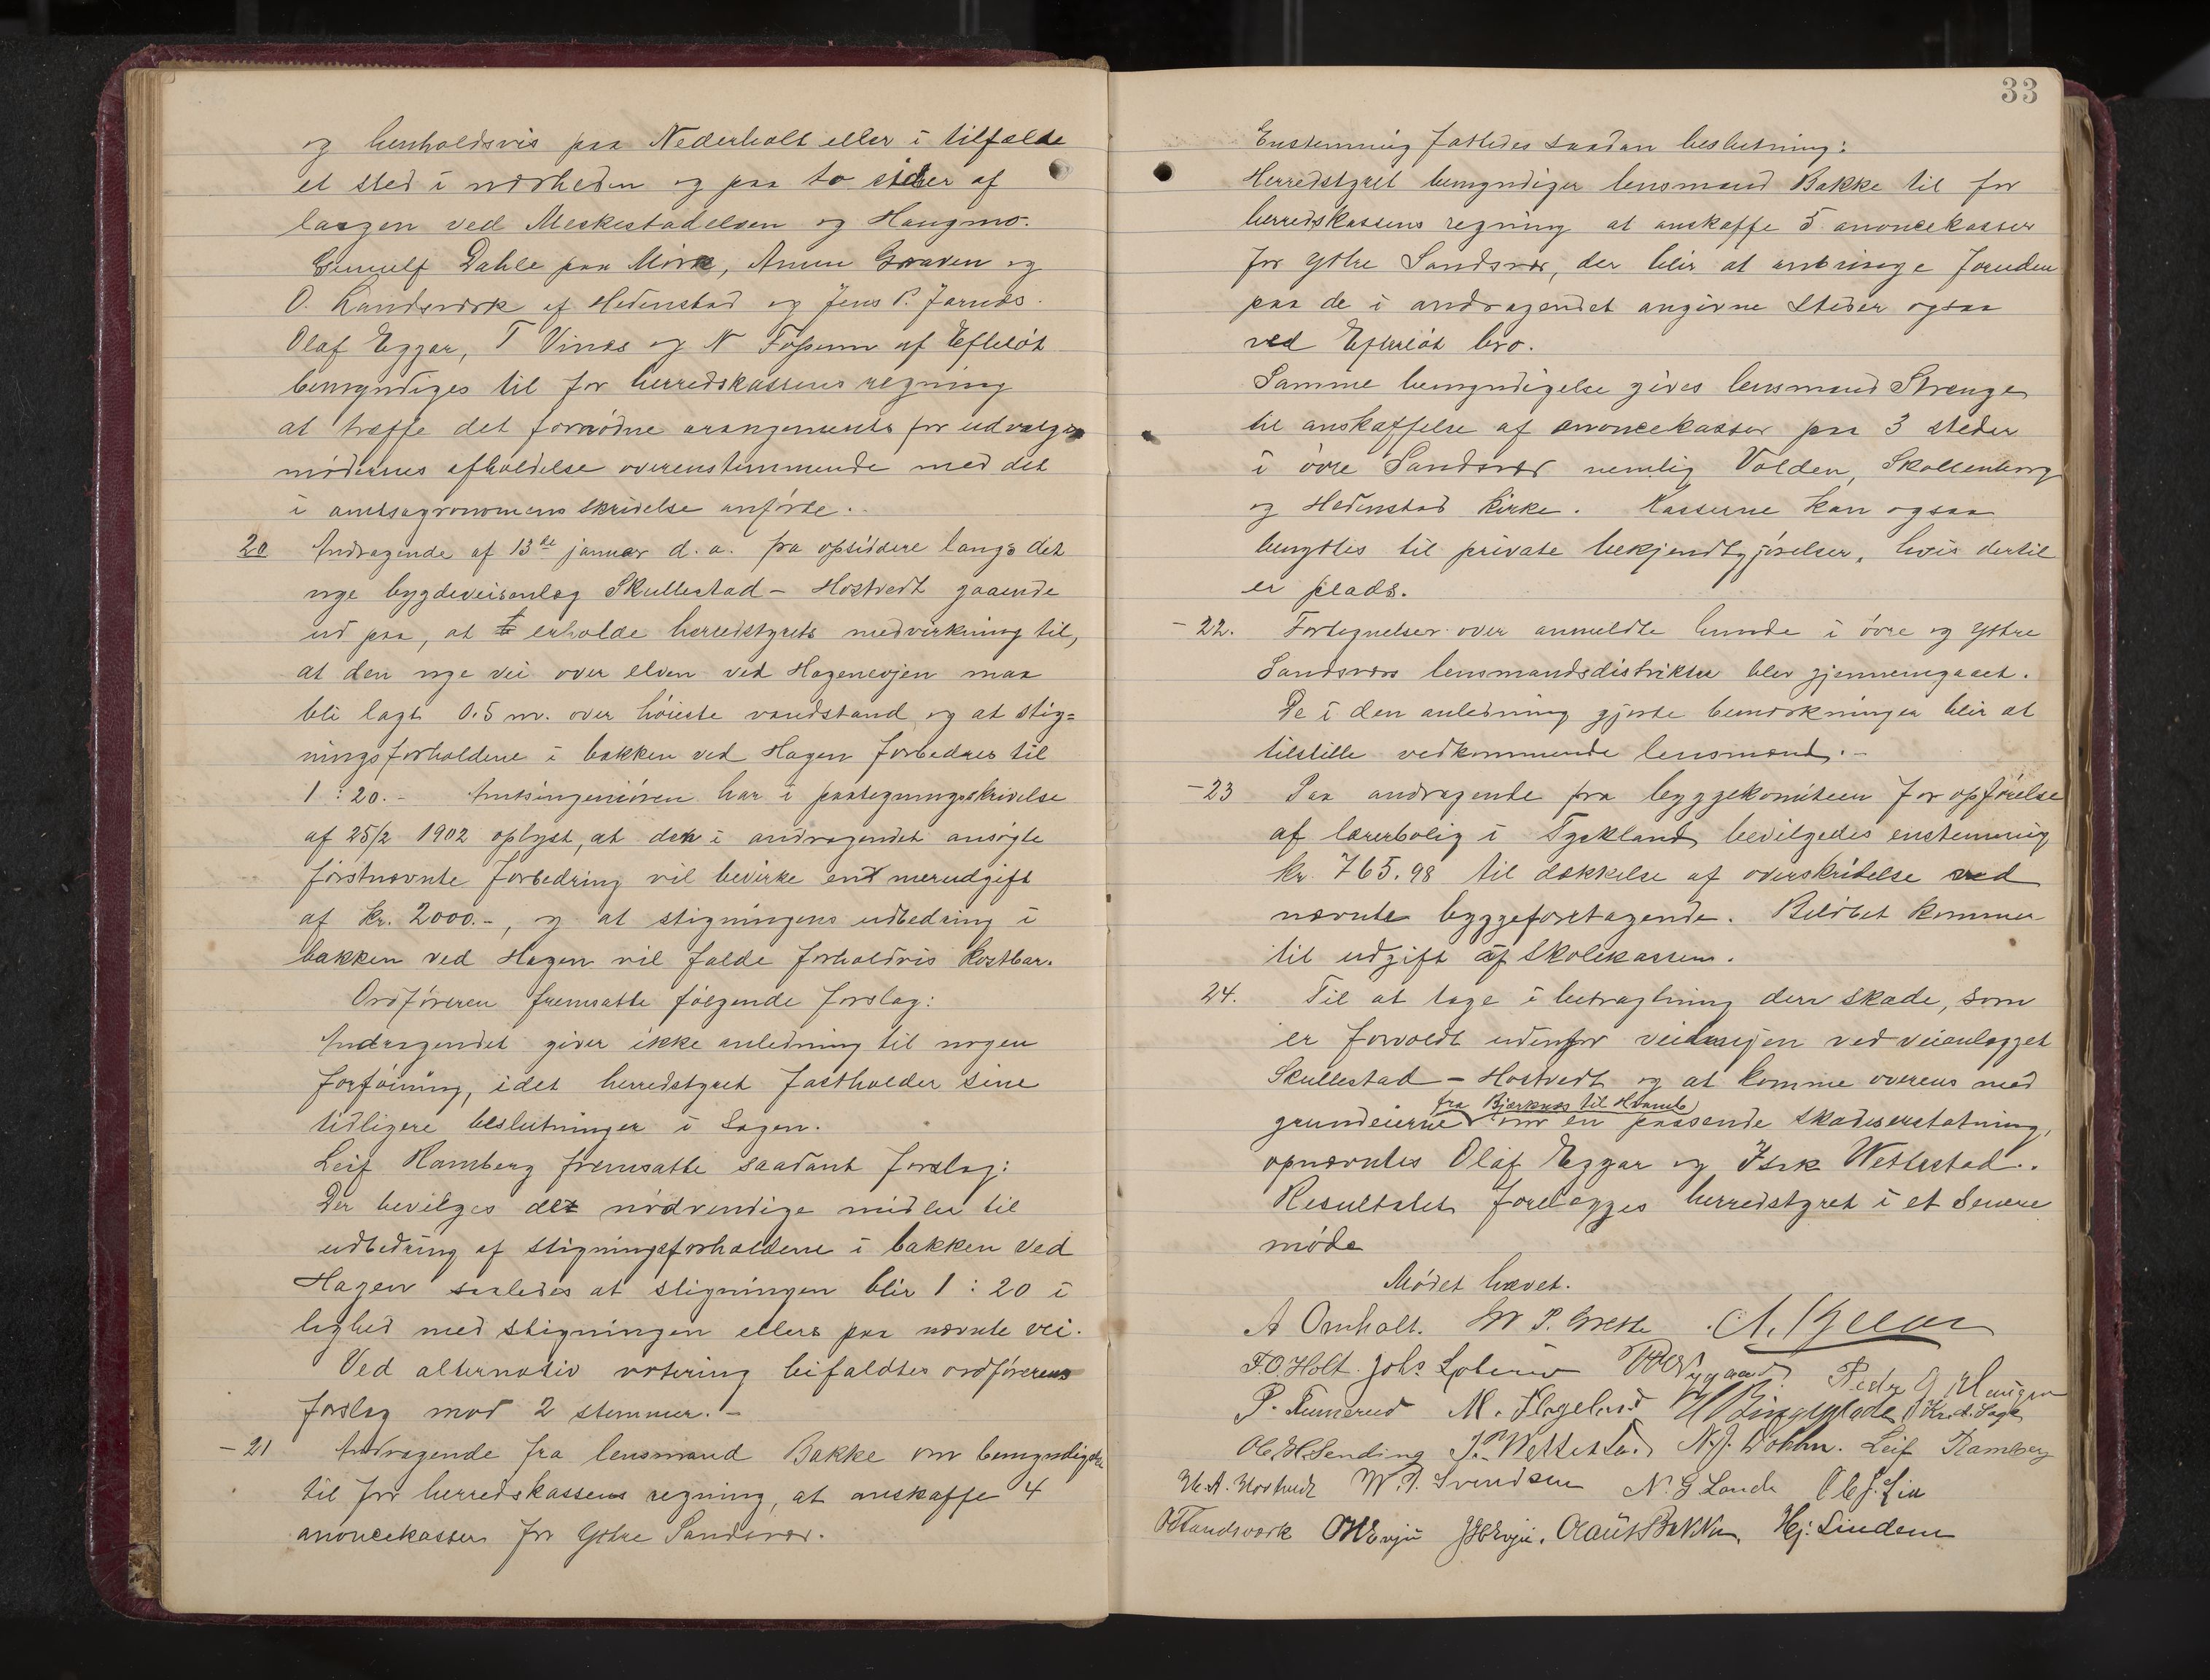 og henholdsvis paa Nederholt eller i tilfælde
et sted i nærheden og paa to sider af
laagen ved Meskestadelven og Haugmo.
Gunulf Dahle paa Moen, Anun Graven og
O. Landsværk af Hedenstad og Jens P. Jarnæs.
Olaf Eggar, T Vinæs og N Fossum af Efteløt
bemyndiges til for herredskassens regning
at træffe det fornødne arangements for udvalgs
mødernes afholdelse overenstemmende med det
i amtsagronomens skrivelse anførte.
20 Andragende af 13de januar d. a. fra opsiddere langs det
nye bygdeveisanlæg Skullestad - Hostvedt gaaende
ud paa, at erholde herredstyrets medvirkning til,
at den nye vei over elven ved Hagenevjen maa
bli lagt 0.5 m. over høieste vandstand og at stig=
ningsforholdene i bakken ved Hagen forbedres til
1 : 20. - Amtsingeniøren har i paategningsskrivelse
af 25/2 1902 oplyst, at den i andragendet ansøgte
førstnævnte forbedring vil bevirke en merudgift
af kr. 2000.-, og at stigningens udbedring i
bakken ved Hagen vil falde forholdvis kostbar.
Ordføreren fremsatte følgende forslag:
Andragendet giver ikke anledning til nogen
forføining, idet herredstyret fastholder sine
tidligere beslutninger i sagen.
Leif Ramberg fremsatte saadant forslag:
Der bevilges de nødvendige midler til
udbedring af stigningsforholdene i bakken ved
Hagen saaledes at stigningen blir 1 : 20 i
lighed med stigningen ellers paa nævnte vei.
Ved alternativ votering bifaldtes ordførerens
forslag mod 2 stemmer. -
- 21 Andragende fra lensmand Bakke om bemyndigelse
til for herredskassens regning, at anskaffe 4
anoncekasser for Ytre Sandsvær.
33
Enstemmig fattedes saadan beslutning:
Herredstyret bemyndiger lensmand Bakke til for
herredskassens regning at anskaffe 5 anoncekasser
for ytre Sandsvær, der blir at anbringe foruden
paa de i andragendet angivne steder ogsaa
ved Efteløt bro.
Samme bemyndigelse gives lensmand Strenge
til anskaffelse af anoncekasser paa 3 steder
i øvre Sandsvær nemlig Volden, Skollenborg
og Hedenstad kirke. Kasserne kan ogsaa
benyttes til private bekjendtgjørelser, hvis dertil
er plads.
- 22. Fortegnelser over anmeldte hunde i øvre og ytre
Sandsværs lensmandsdistrikter blev gjennemgaaet.
De i den anledning gjorte bemærkninger blir at
tilstille vedkommende lensmænd. -
- 23 Paa andragende fra byggekomiteen for opførelse
af lærerbolig i Tyskland bevilgedes enstemmig
kr. 765.98 til dækkelse af overskridelse ved
nævnte byggeforetagende. Beløbet kommer
til udgift af skolekassen.
24. Til at tage i betragtning den skade, som
er forvoldt udenfor veilinjen ved veianlægget
Skullestad - Hostvedt og at komme overens med
fra Bjørknes til Hvamb
grundeierne om en passende skadeserstatning,
opnævntes Olaf Eggar og Isak Wettestad.
Resultatet forelægges herredstyret i et senere
møde
Mødet hævet.
A Omholt.
F. O. Holt. Johs
P. Tumerud M. Hageland
Ole H. Sending I. P. Wettestad N. J. Dokken. Leif Ramberg
H. A. Hostvedt W. P. Svendsen N. G Lande Ole J. Lia
O Landsværk O H Evju J H Evju. Olaus Bakken Hj. Lindem